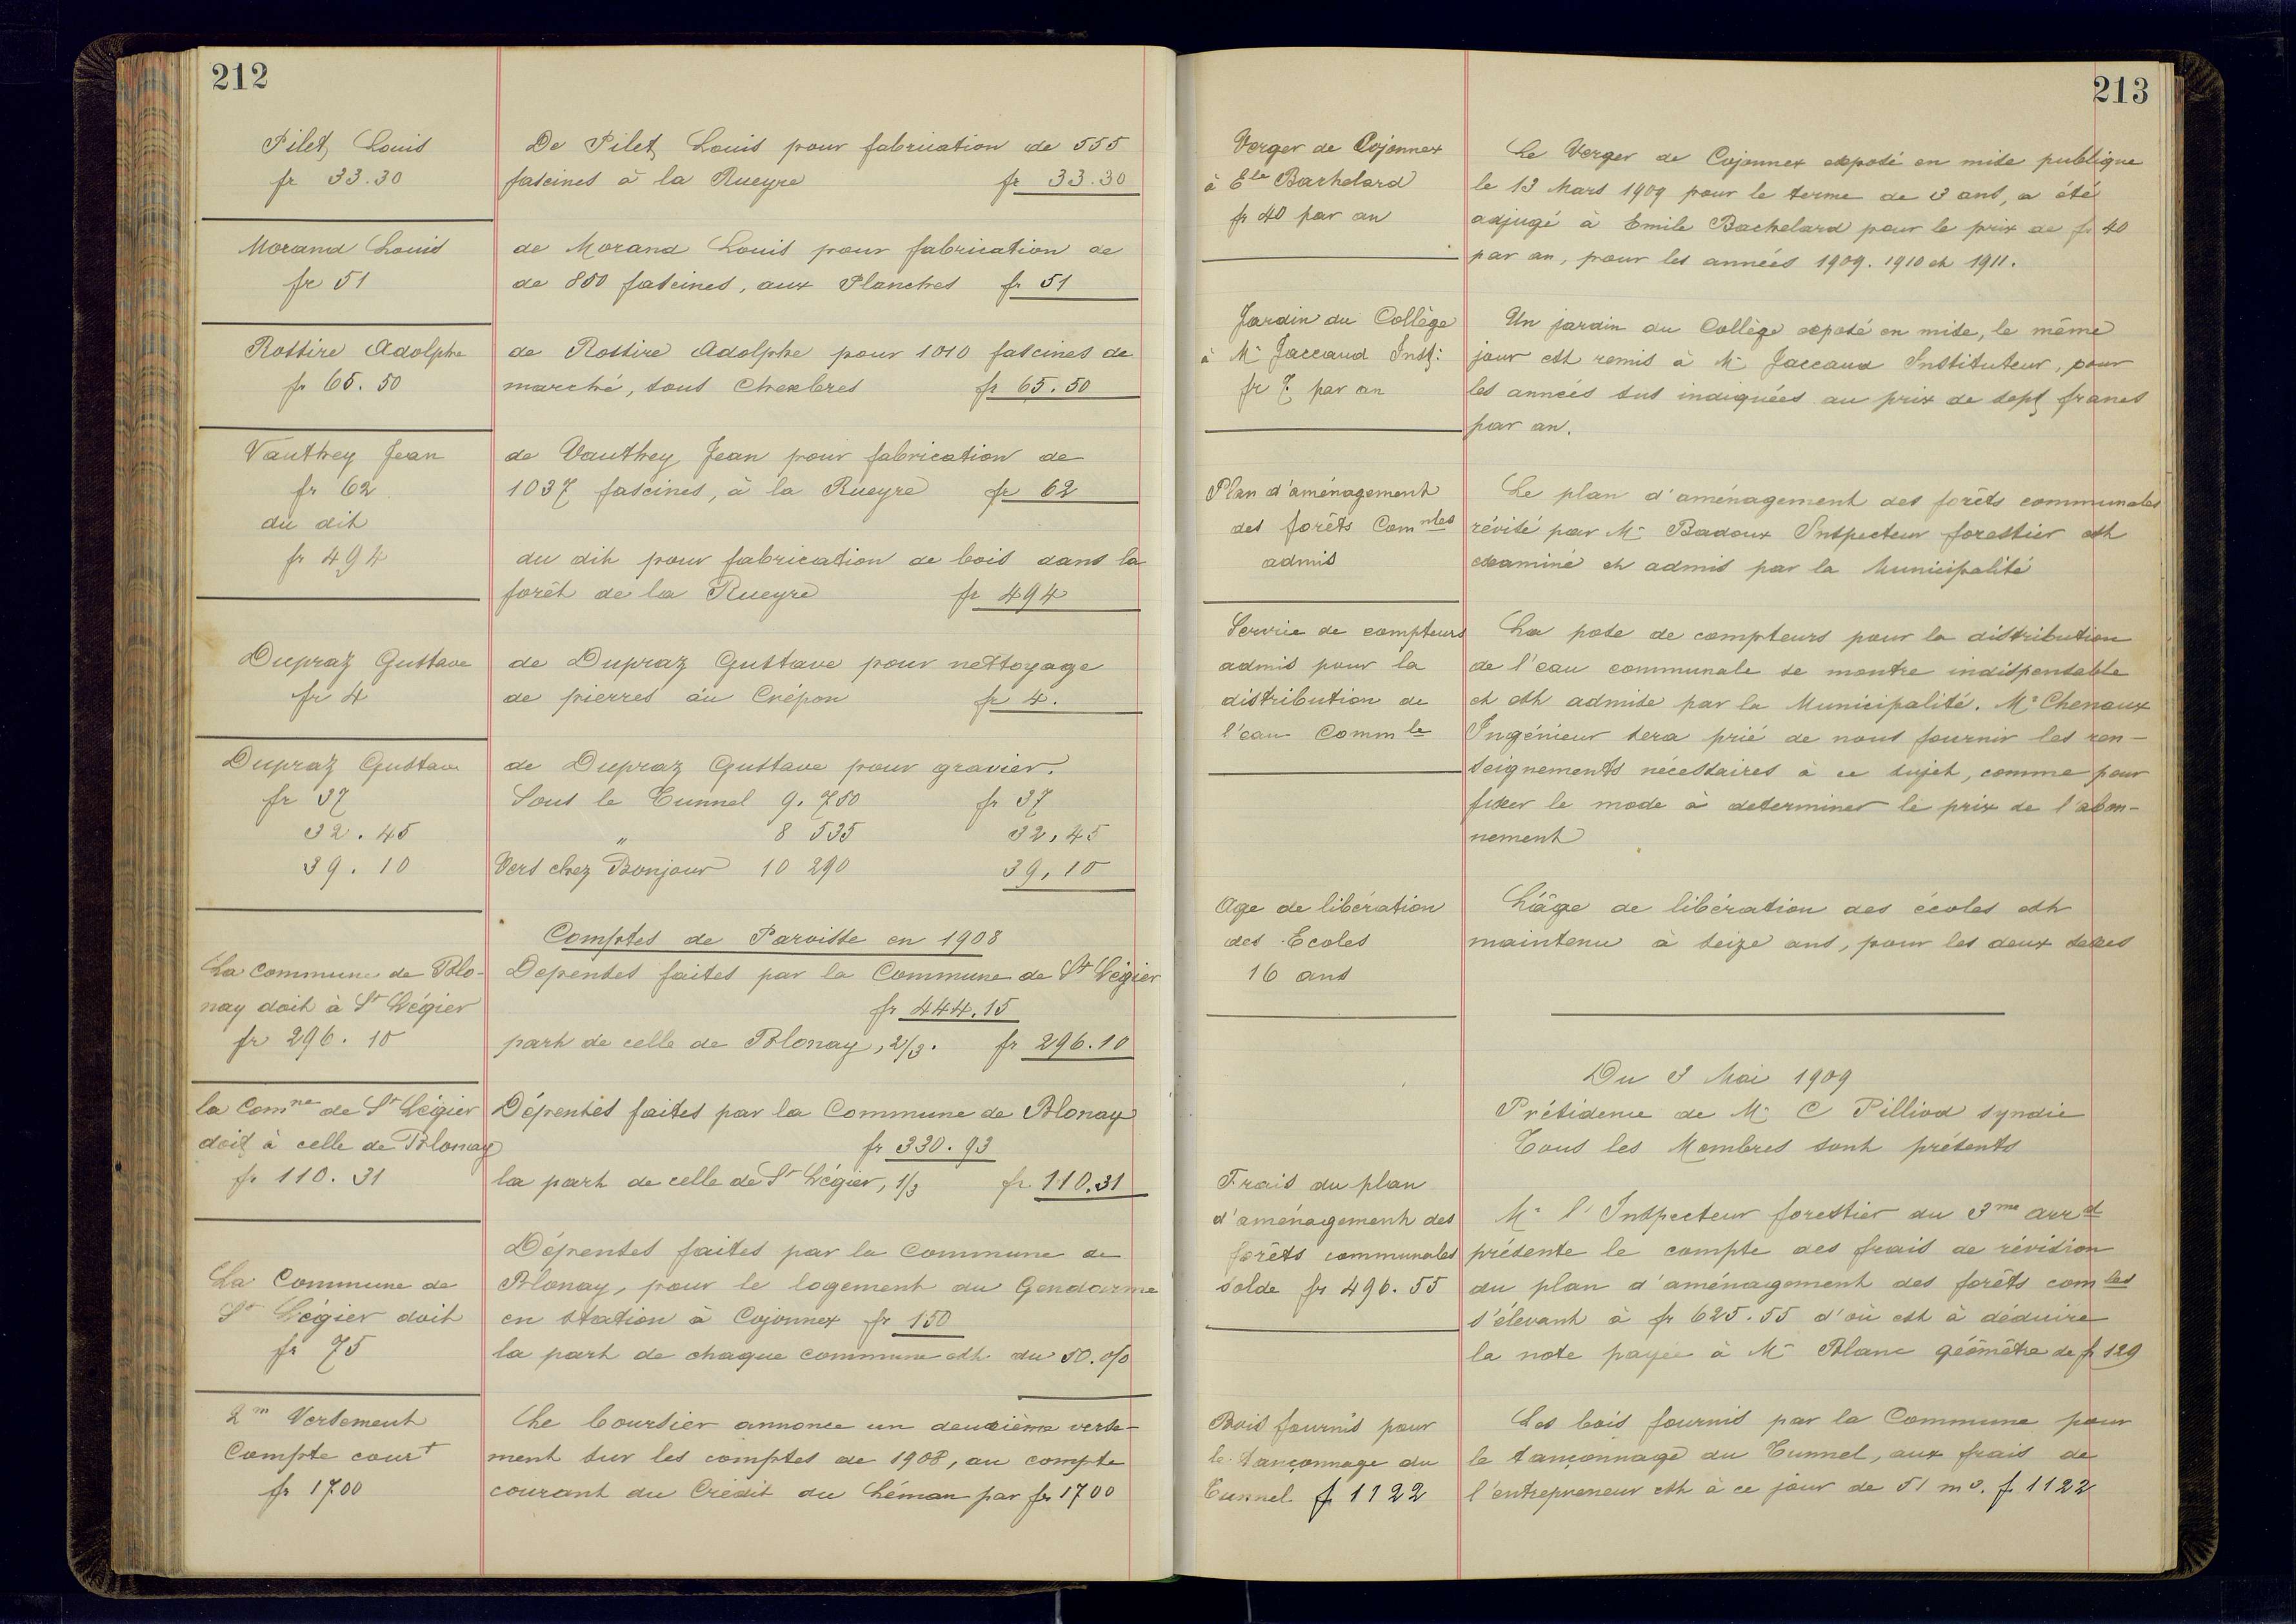 212
Pilet Louis
fr 33.30
De Pilet Louis pour fabrication de 555
fascines à la Rueyre fr 33.30
Morand Louis
fr 51
de Morand Louis pour fabrication de
de 850 fascines, aux Planches fr 51
Rossire Adolphe
fr 65.50
de Rossire Adolphe pour 1010 fascines de
marché, sous Chexbres fr 65.50
Vauthey Jean
fr 62
du dit
fr 494
de Vauthey Jean pour fabrication de
1037 fascines, à la Rueyre fr 62
du dit pour fabrication de bois dans la
forêt de la Rueyre fr 494
Dupraz Gustave
fr 4
de Dupraz Gustave pour nettoyage
de pierres au Crépon fr 4.
Dupraz Gustave
fr 37
32.45
39.10
de Dupraz Gustave pour gravier.
Sous le Tunnel 9.750 fr 37
" 8 535 32,45
Vers chez Bonjour 10 290 39,10
Comptes de Paroisse en 1908
La Commune de Blo-
nay doit à St Légier
fr 296.10
Depenses faites par la Commune de St Légier
fr 444.15
part de celle de Blonay, 2/3. fr 296.10
la Comne de St Légier
doit à celle de Blonay
fr 110.31
Dépenses faites par la Commune de Blonay
fr 330.93
la part de celle de St Légier, 1/3 fr. 110.31
La Commune de
St Légier doit
fr 75
Dépenses faites par la Commune de
Blonay, pour le logement du Gendarme
en station à Cojonnex fr 150
la part de chaque commune est du 50.o/o
2m Versement
Compte court
fr 1700
Le boursier annonce un deuxième verse-
ment sur les comptes de 1908, au compte
courant du Crédit du Léman par fr 1700
213
Verger de Cojonnex
à Ele Bachelard
fr 40 par an
Le Verger de Cojonnex exposé en mise publique
le 13 Mars 1909 pour le terme de 3 ans, a été
adjugé à Emile Bachelard pour le prix de fr 40
par an, pour les années 1909. 1910 et 1911.
Jardin du Collège
à Mr Jaccaud Inst:
fr 7 par an
Un jardin du Collège exposé en mise, le même
jour est remis à Mr Jaccaud Instituteur, pour
les années sus indiquées au prix de sept francs
par an.
Plan d'aménagement
des forêts Comnles
admis
Le plan d'aménagement des forêts communales
révisé par Mr Badoux Inspecteur forestier est
examiné et admis par la Municipalité
Servie de compteurs
admis pour la
distribution de
l'eau Commle
La pose de compteurs pour la distribution
de l'eau communale se montre indispensable
et est admise par la Municipalité. Mr Chenaux
Ingénieur sera prié de nous fournir les ren-
seignements nécessaires à ce sujet, comme pour
fixer le mode à determiner le prix de l'abon-
nement
Age de libération
des Ecoles
16 ans
L'âge de libération des écoles est
maintenu à seize ans, pour les deux sexes
Du 3 Mai 1909
Présidence de Mr C Pilliod syndic
Tous les Membres sont présents
Frais du plan
d'aménagement des
forêts communales
solde fr 496.55
Mr l'Inspecteur forestier du 3me arrdt
présente le compte des frais de révision
du plan d'aménagement des forêts comles
s'élevant à fr 625.55 d'où est à déduire
la note payée à Mr Blanc géomètre de fr 129
Bois fournis pour
le tançonnage du
Tunnel fr 1122
Les bois fournis par la Commune pour
le tançonnage du Tunnel, aux frais de
l'entrepreneur est à ce jour de 51 m3. f. 1122